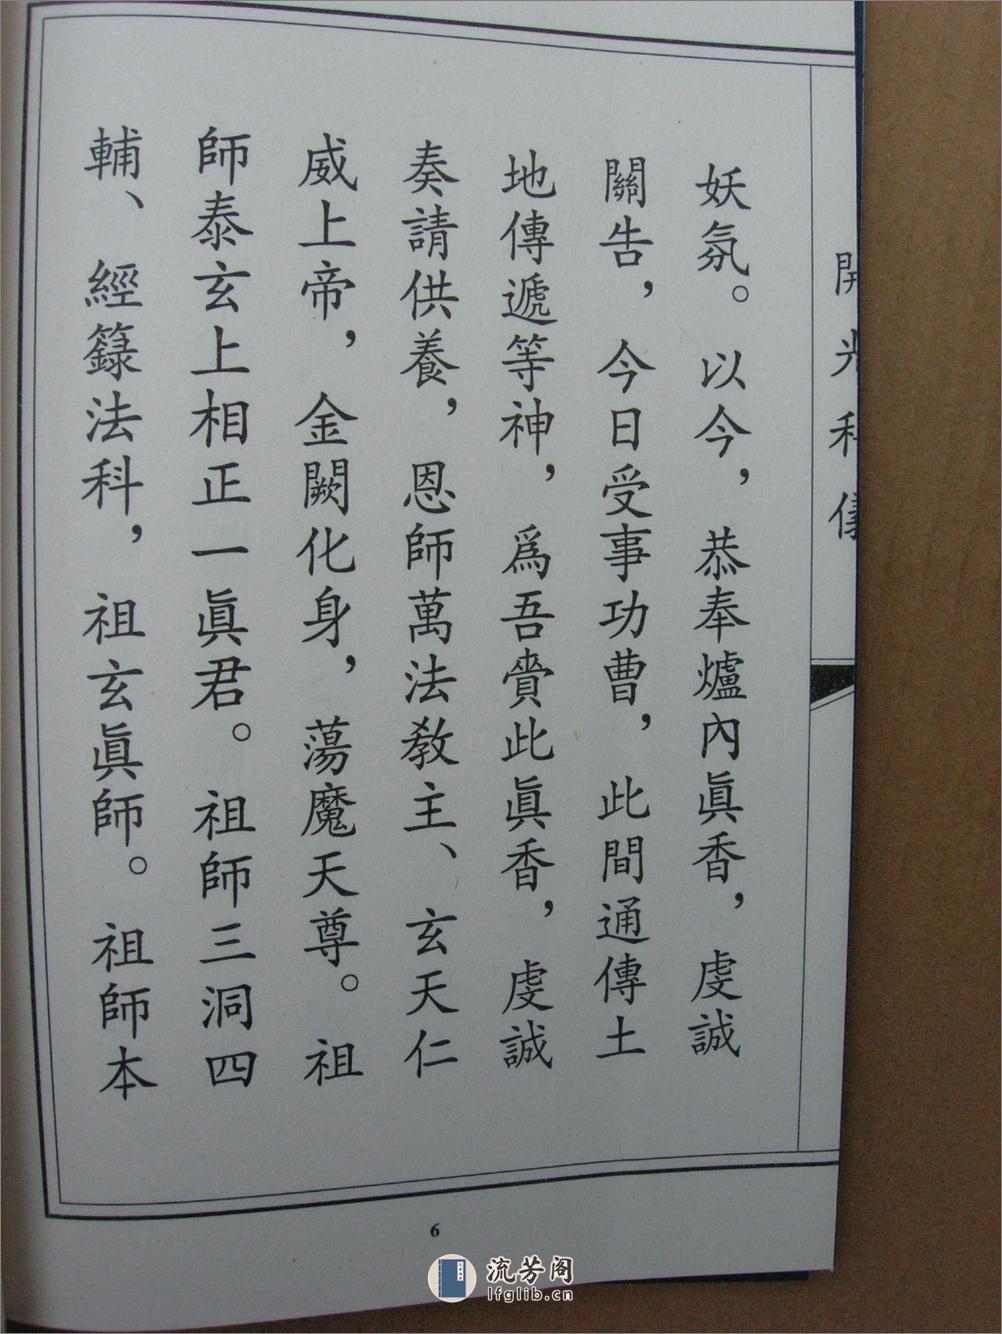 開光科儀
妖氛。以今，恭奉爐內眞香，虔誠
關告，今日受事功曹，此間通傳土
地傳遞等神，爲吾賫此眞香，虔誠
奏請供養，恩師萬法教主、玄天仁
威上帝，金闕化身，蕩魔天尊。祖
師泰玄上相正一眞君。祖師三洞四
輔、經籙法科，祖玄眞師。祖師本
6
流芳阁
lfglib.cn